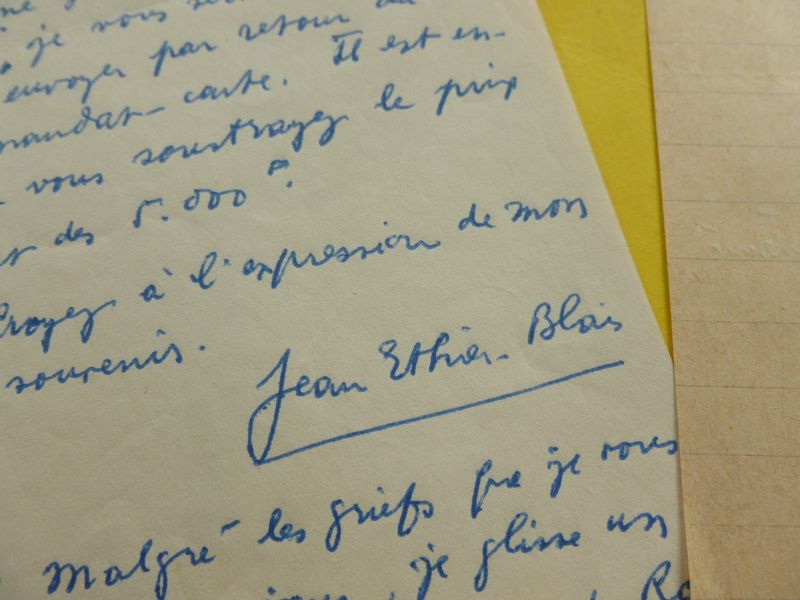 je vous
envoyer par retour du
mandat-carte. Il est en-
vous soustrayez le prix
des 5.000?
Croyez à l'expression de mon
souvenir.
Jean Ethier-Blais
Malgré les griefs que je vous
, je glisse un